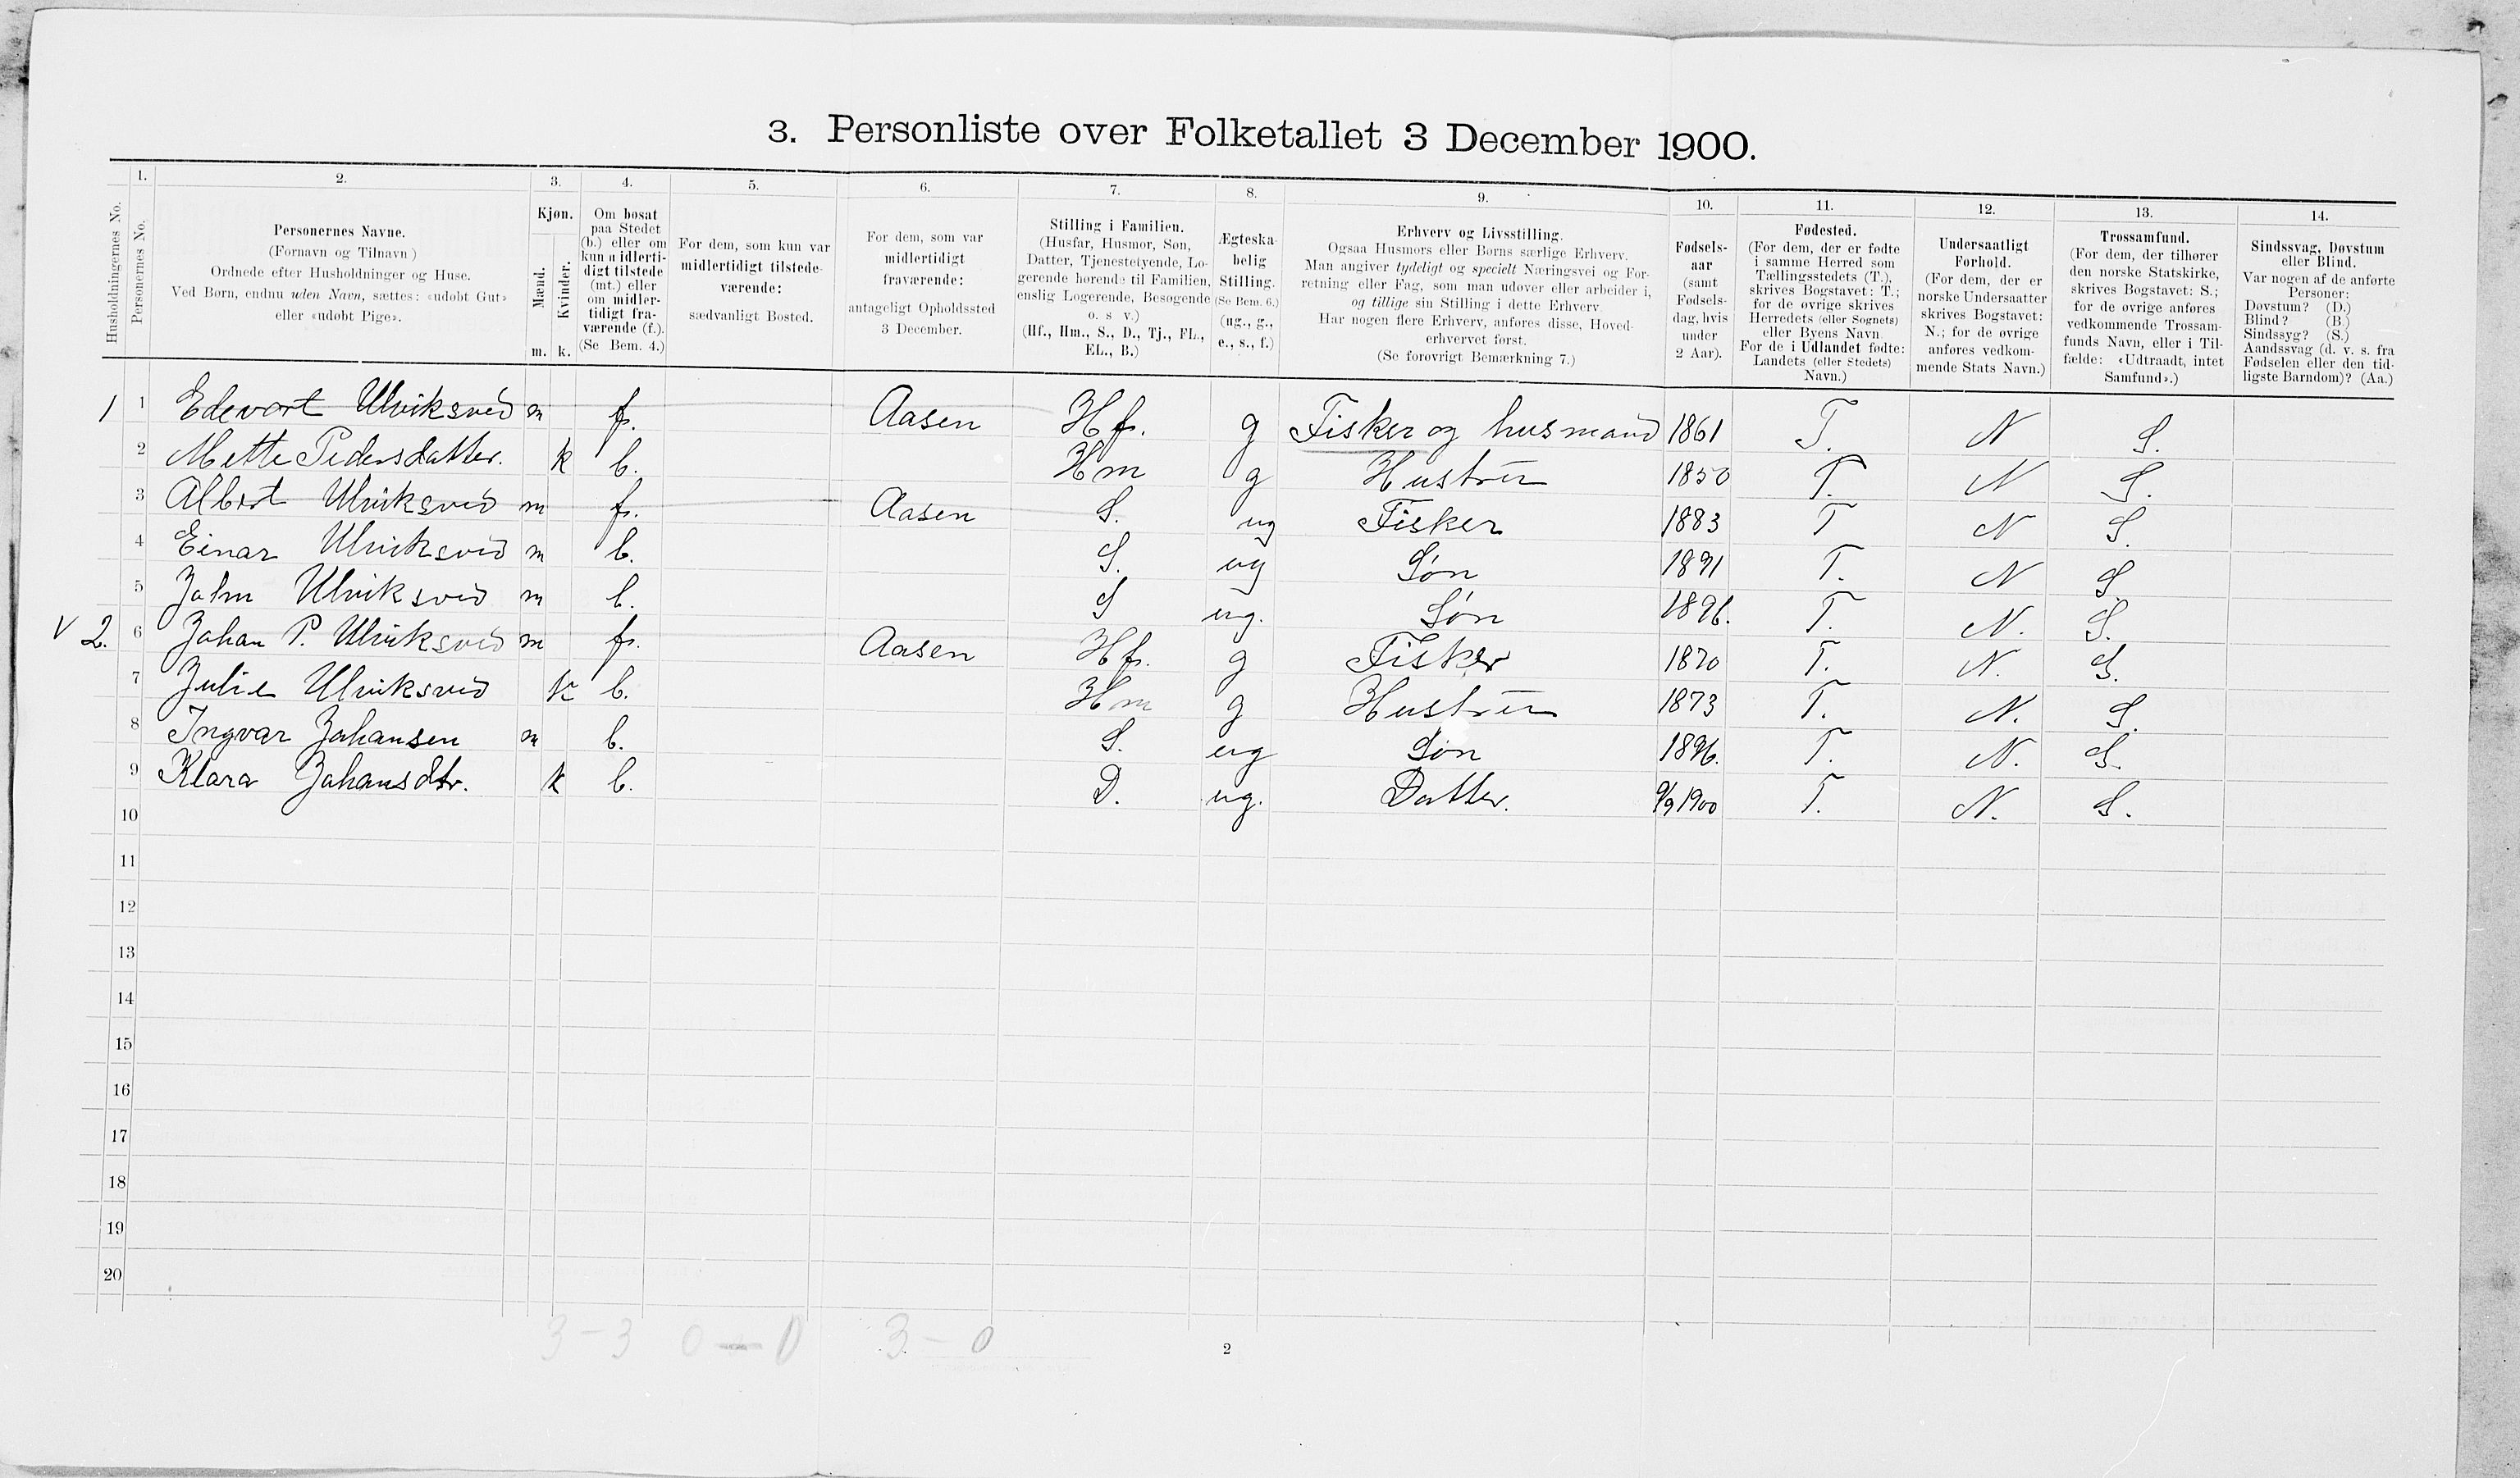 3. Personliste over Folketallet 3 December 1900.
1. 2. 3. 4. 5. 6. 7. 8. 9. 10. 11. 12. 13. 14.
Husholdningernes No.
Personernes No.
Personernes Navne.
(Fornavn og Tilnavn)
Ordnede efter Husholdninger og Huse.
Ved Børn, endnu uden Navn, sættes: «udøbt Gut»
eller «udøbt Pige».
Kjøn.
Mænd.
Kvinder.
m. k.
Om bosat
paa Stedet
(b.) eller om
kun midlerti-
digt tilstede
(mt.) eller
om midler-
tidigt fra-
værende (f.).
(Se Bem. 4.)
For dem, som kun var
midlertidigt tilstede-
værende:
sædvanligt Bosted.
For dem, som var
midlertidigt
fraværende:
antageligt Opholdssted
3 December.
Stilling i Familien.
(Husfar, Husmor, Søn,
Datter, Tjenestetyende, Lo-
gerende hørende til Familien,
enslig Logerende, Besøgende
o. s v.)
(Hf., Hm., S., D., Tj., FL.,
EL., B.)
Ægteska-
belig
Stilling.
(Se Bem. 6.)
(ug., g.,
e., s., f.)
Erhverv og Livsstilling.
Ogsaa Husmors eller Børns særlige Erhverv.
Man angiver tydeligt og specielt Næringsvei og For-
retning eller Fag, som man udøver eller arbeider i,
og tillige sin Stilling i dette Erhverv.
Har nogen flere Erhverv, anføres disse, Hoved-
erhvervet først.
(Se forøvrigt Bemærkning 7.)
Fødsels-
aar
(samt
Fødsels-
dag, hvis
under
2 Aar).
Fødested.
(For dem, der er fødte
i samme Herred som
Tællingsstedets (T.),
skrives Bogstavet: T.;
for de øvrige skrives
Herredets (eller Sognets)
eller Byens Navn
For de i Udlandet fødte:
Landets (eller Stedets)
Navn.)
Undersaatligt
Forhold.
(For dem, der er
norske Undersaatter
skrives Bogstavet:
N.; for de øvrige
anføres vedkom-
mende Stats Navn.)
Trossamfund.
(For dem, der tilhører
den norske Statskirke,
skrives Bogstavet: S.;
for de øvrige anføres
vedkommende Trossam-
funds Navn, eller i Til-
fælde: «Udtraadt, intet
Samfund».)
Sindssvag, Døvstum
eller Blind.
Var nogen af de anførte
Personer:
Døvstum? (D.)
Blind? (B.)
Sindssyg? (S.)
Aandssvag (d. v. s. fra
Fødselen eller den tid-
ligste Barndom)? (Aa.)
1 1 Edevart Ulriksvid m f. Aasen Hf. g Fisker og husmand 1861 T. N S.
2 Mette Pedersdatter. k b. Hm g Hustru 1850 T. N S.
3 Albert Ulriksvid m f. Aasen S. ug Fisker 1883 T N S.
4 Einar Ulriksvid m b. S. ug Søn 1891 T. N S.
5 John Ulriksvid m b. S ug. Søn 1896. T. N. S.
V 2. 6 Johan P. Ulriksvid m f. Aasen Hf. g Fisker 1870 T. N. S.
7 Julie Ulriksvid k b. Hm g Hustru 1873 T. N. S.
8 Ingvar Johansen m b. S. ug Søn 1896. T. N. S.
9 Klara Johansdtr. k b. D. ug. Datter. 9/9 1900 T. N. S.
10
11
12
13
14
15
16
17
18
19
20
3 - 3 0 - 0 3 - 0
2